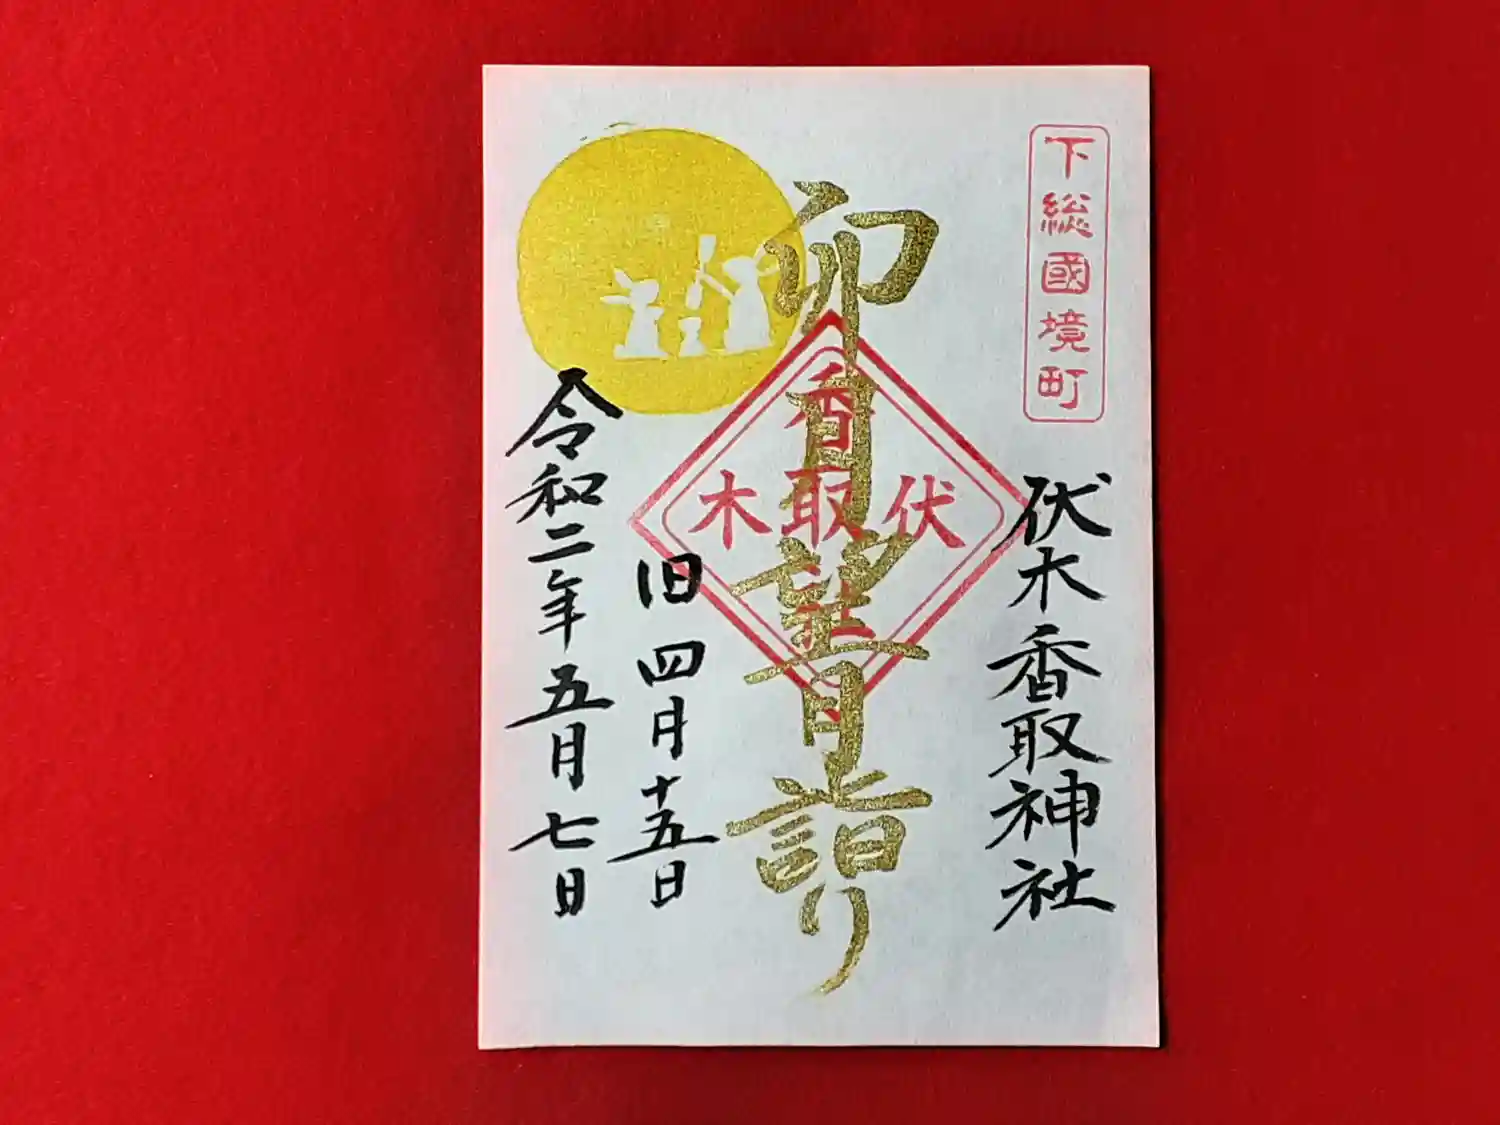 下総國境町
伏木香取神社
卯月望月詣り
香
伏取木
社
旧四月十五日
令和二年五月七日